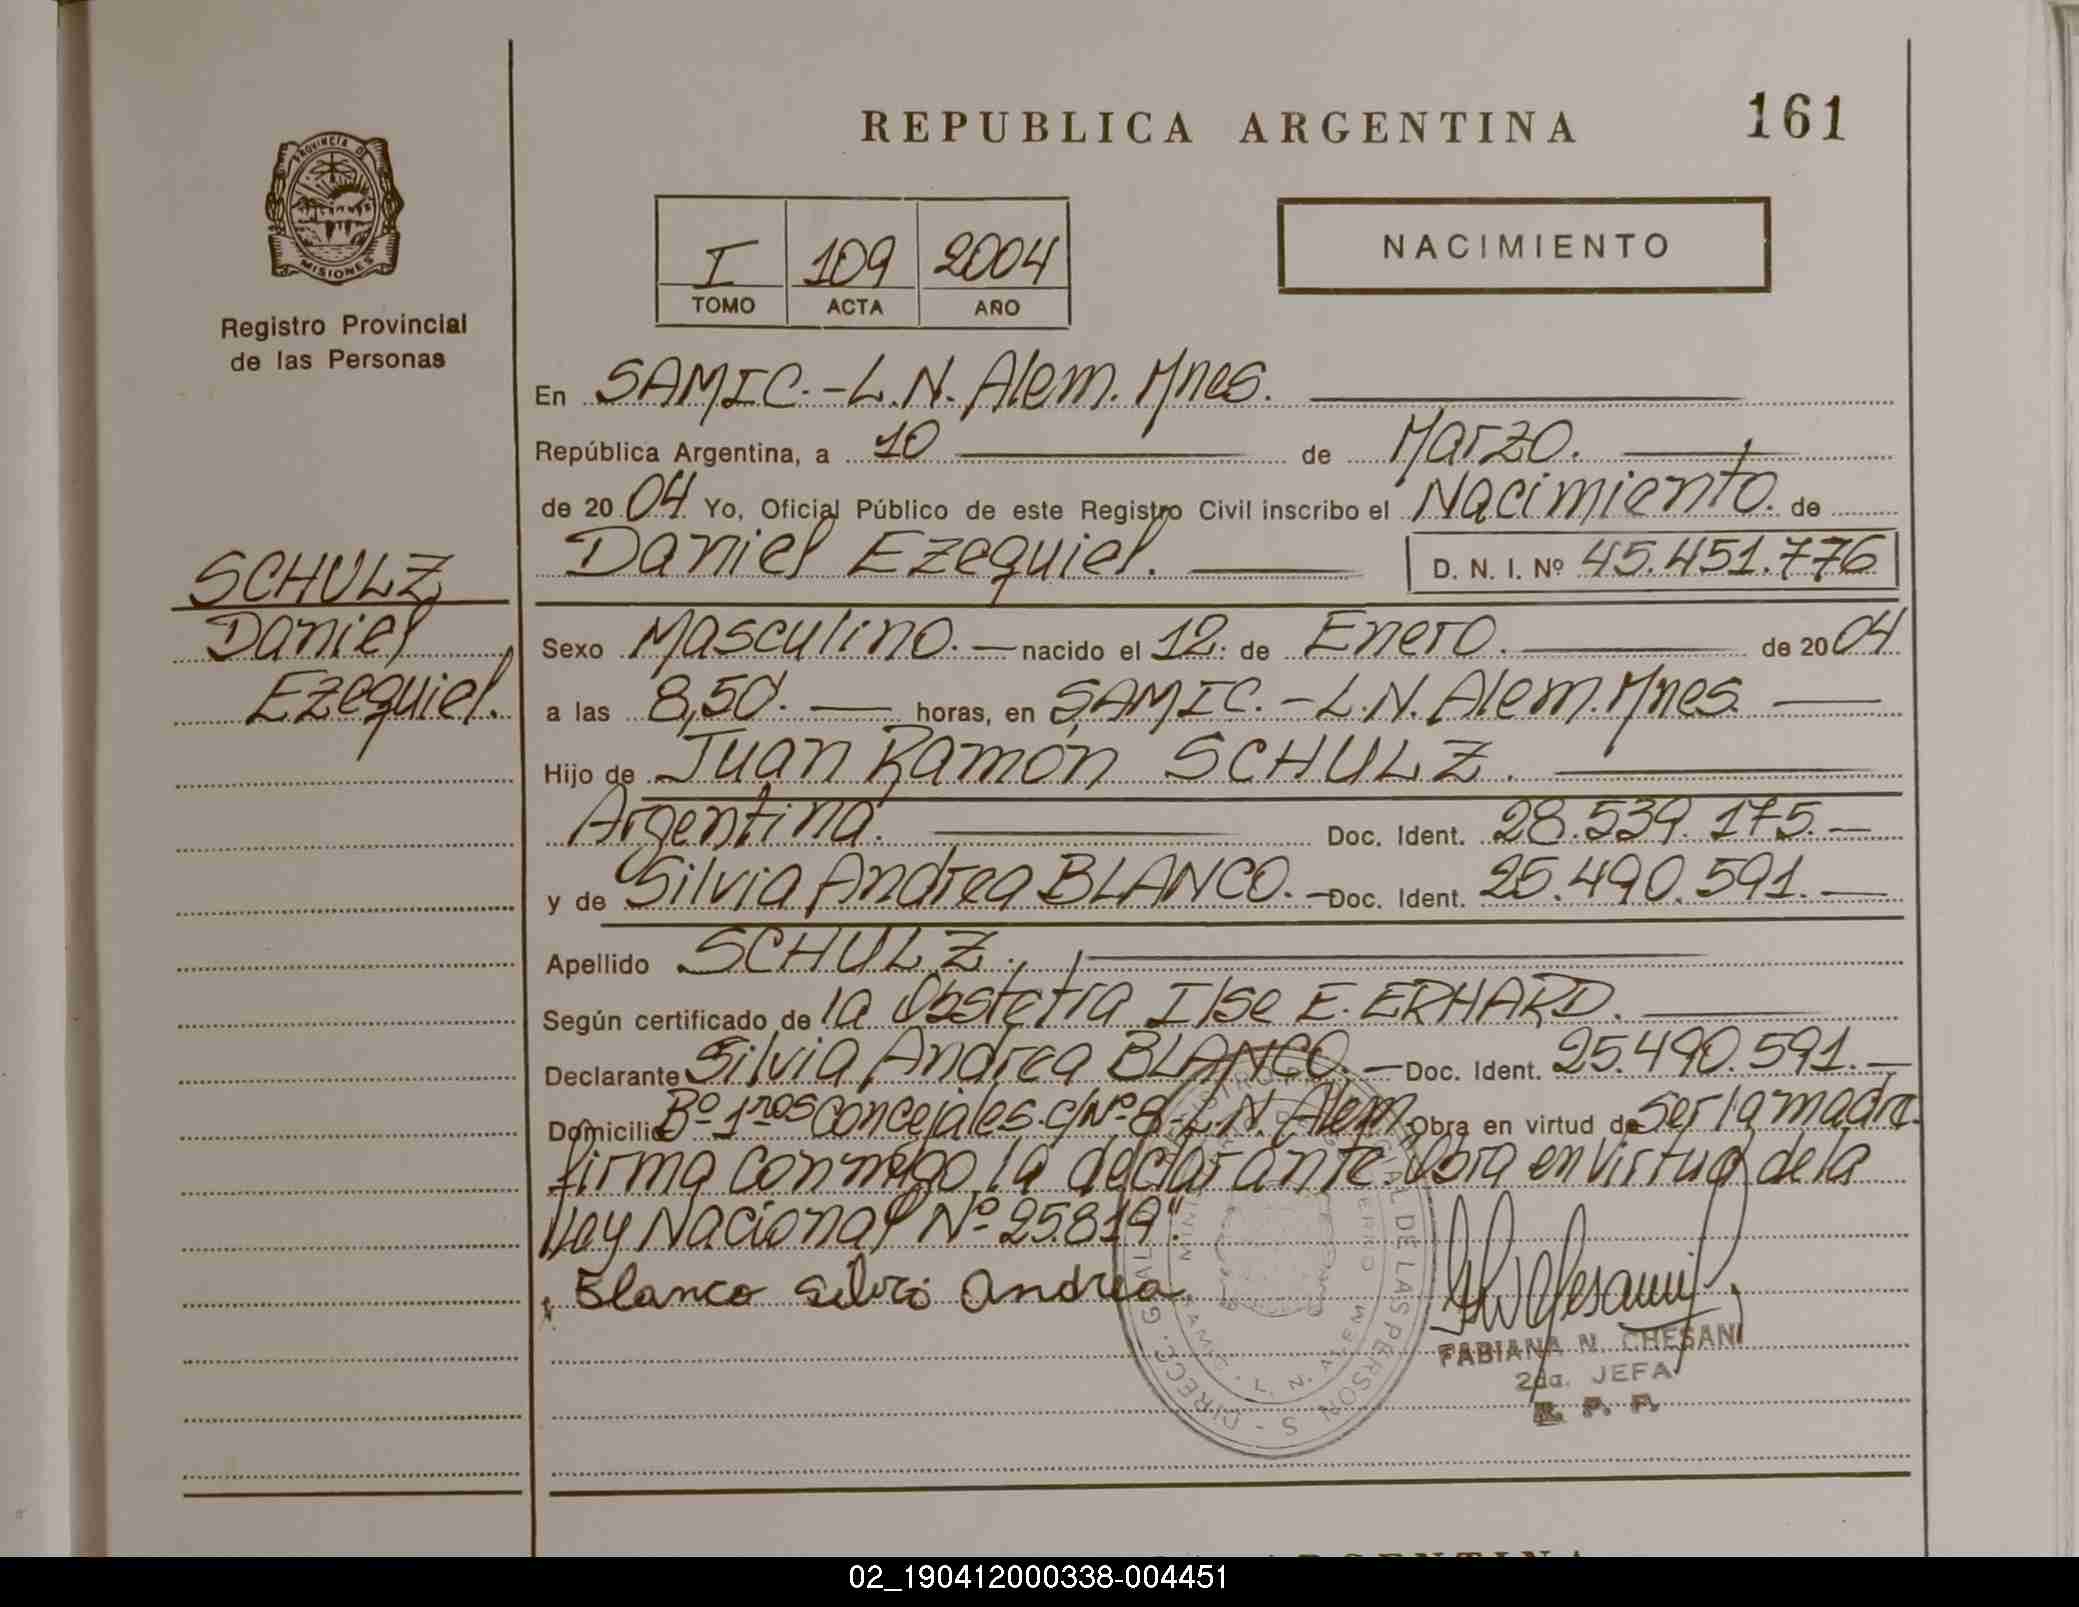 REPUBLICA ARGENTINA 161
PROVINCIA D
MISIONES
Registro Provincial
de las Personas
I 109 2004
TOMO ACTA AÑO
NACIMIENTO
En SAMIC.-L.N. Alem. Mnes.
República Argentina, a 10 de Marzo.
de 2004 Yo, Oficial Público de este Registro Civil inscribo el Nacimiento. de
Daniel Ezequiel. D. N. I. Nº 45.451.776
SCHULZ
Daniel
Ezequiel.
Sexo Masculino. nacido el 12. de Enero. de 2004
a las 8,50. horas, en SAMIC.-L.N. Alem. Mnes.
Hijo de Juan Ramón SCHULZ.
Argentina. Doc. Ident. 28.539.175.
y de Silvia Andrea BLANCO. Doc. Ident. 25.490.591.
Apellido SCHULZ.
Según certificado de la Obstetra Ilse E. ERHARD.
Declarante Silvia Andrea BLANCO. Doc. Ident. 25.490.591.
Domicilio Bº 1ros Concejales c/Nº8-L.N. Alem Obra en virtud de Ser la madre
firma conmigo la declarante. Obra en virtud de la
Ley Nacional Nº 25.819".
Blanco Silvia Andrea
FABIANA N. CHESANI
2da. JEFA
R. P. P.
ARGENTINA
02_190412000338-004451